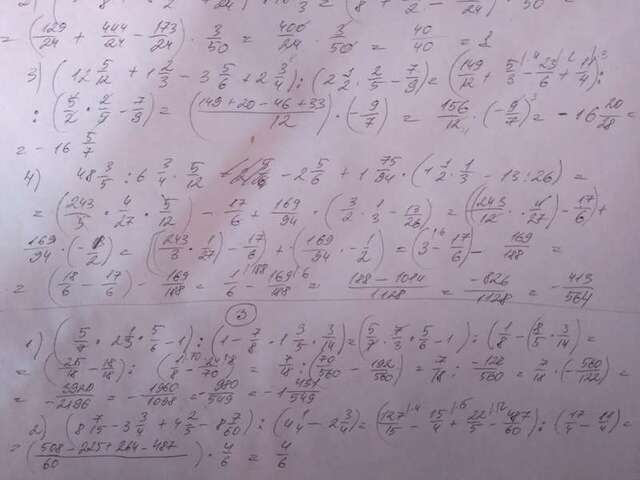 = (129/24 + 444/24 - 173/24) · 3/50 = 400/24 · 3/50 = 40/40 = 1
3) (12 5/12 + 1 2/3 - 3 5/6 + 2 3/4) : (2 1/2 · 2/5 - 7/9) = (149/12 + 5/3 - 23/6 + 11/4) :
: (5/2 · 2/5 - 7/9) = (149+20-46+33/12) · (-9/7) = 156/12 · (-9/7) = -16 20/28 =
= -16 5/7
4) 48 3/5 : 6 3/4 · 5/12 - 2 5/6 + 1 75/94 · (1 1/2 · 1/3 - 13:26) =
= (243/5 · 4/27 · 5/12) - 17/6 + 169/94 · (3/2 · 1/3 - 13/26) = ((243/12 · 4/27) - 17/6) +
169/94 · (-1/2) = ((243/3 · 1/27) - 17/6) + (169/94 · -1/2) = (3 - 17/6) - 169/188 =
= (18/6 - 17/6) - 169/188 = 1/6 - 169/188 = 188-1014/1128 = -826/1128 = -413/564
3
1) (5/7 · 2 1/3 · 5/6 - 1) : (1 - 7/8 - 1 3/5 · 3/14) = (5/7 · 7/3 · 5/6 - 1) : (1/8 - (8/5 · 3/14) =
= (25/18 - 18/18) : (1/8 - 24/70) = 7/18 : (70/560 - 192/560) = 7/18 : -122/560 = 7/18 · (-560/122) =
= -3920/2196 = -1960/1098 = -980/549 = -1 431/549
2) (8 7/15 - 3 3/4 + 4 2/5 - 8 7/60) : (4 1/4 - 2 3/4) = (127/15 - 15/4 + 22/5 - 487/60) : (17/4 - 11/4) =
= (508-225+264-487/60) · 4/6 = 4/6